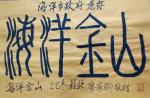 海洋乡政府惠存
海洋金山
海洋金山